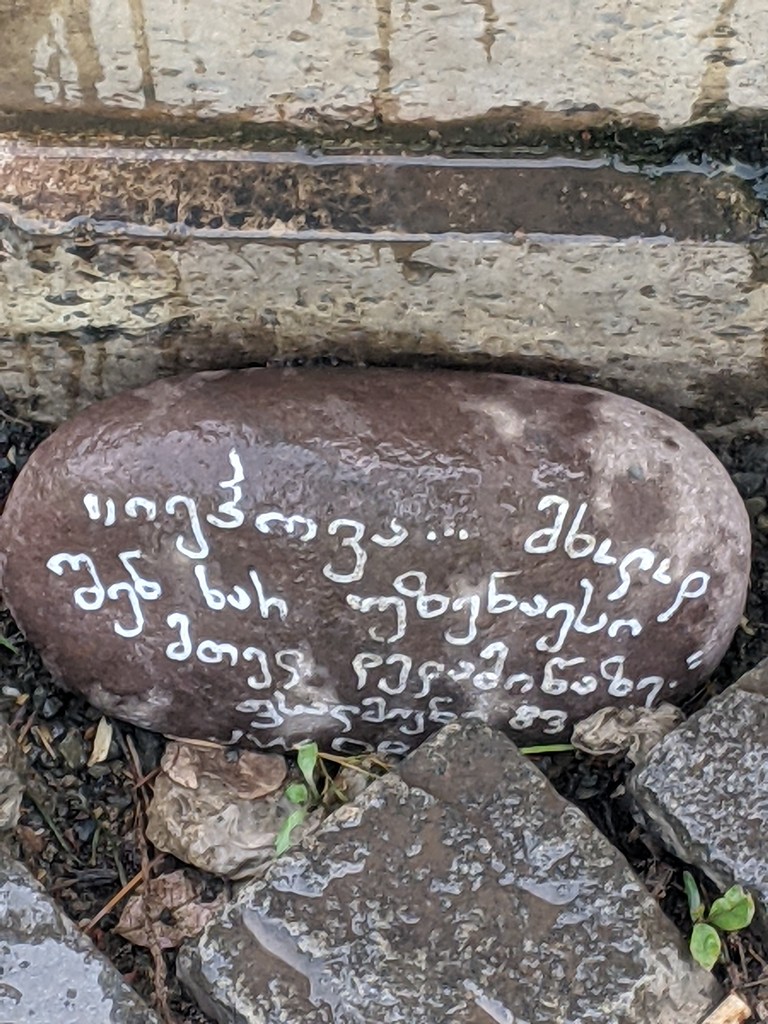 "იეჰოვა... მხოლოდ
შენ ხარ უზენაესი
მთელ დედამიწაზე."
ფსალმუნი 83